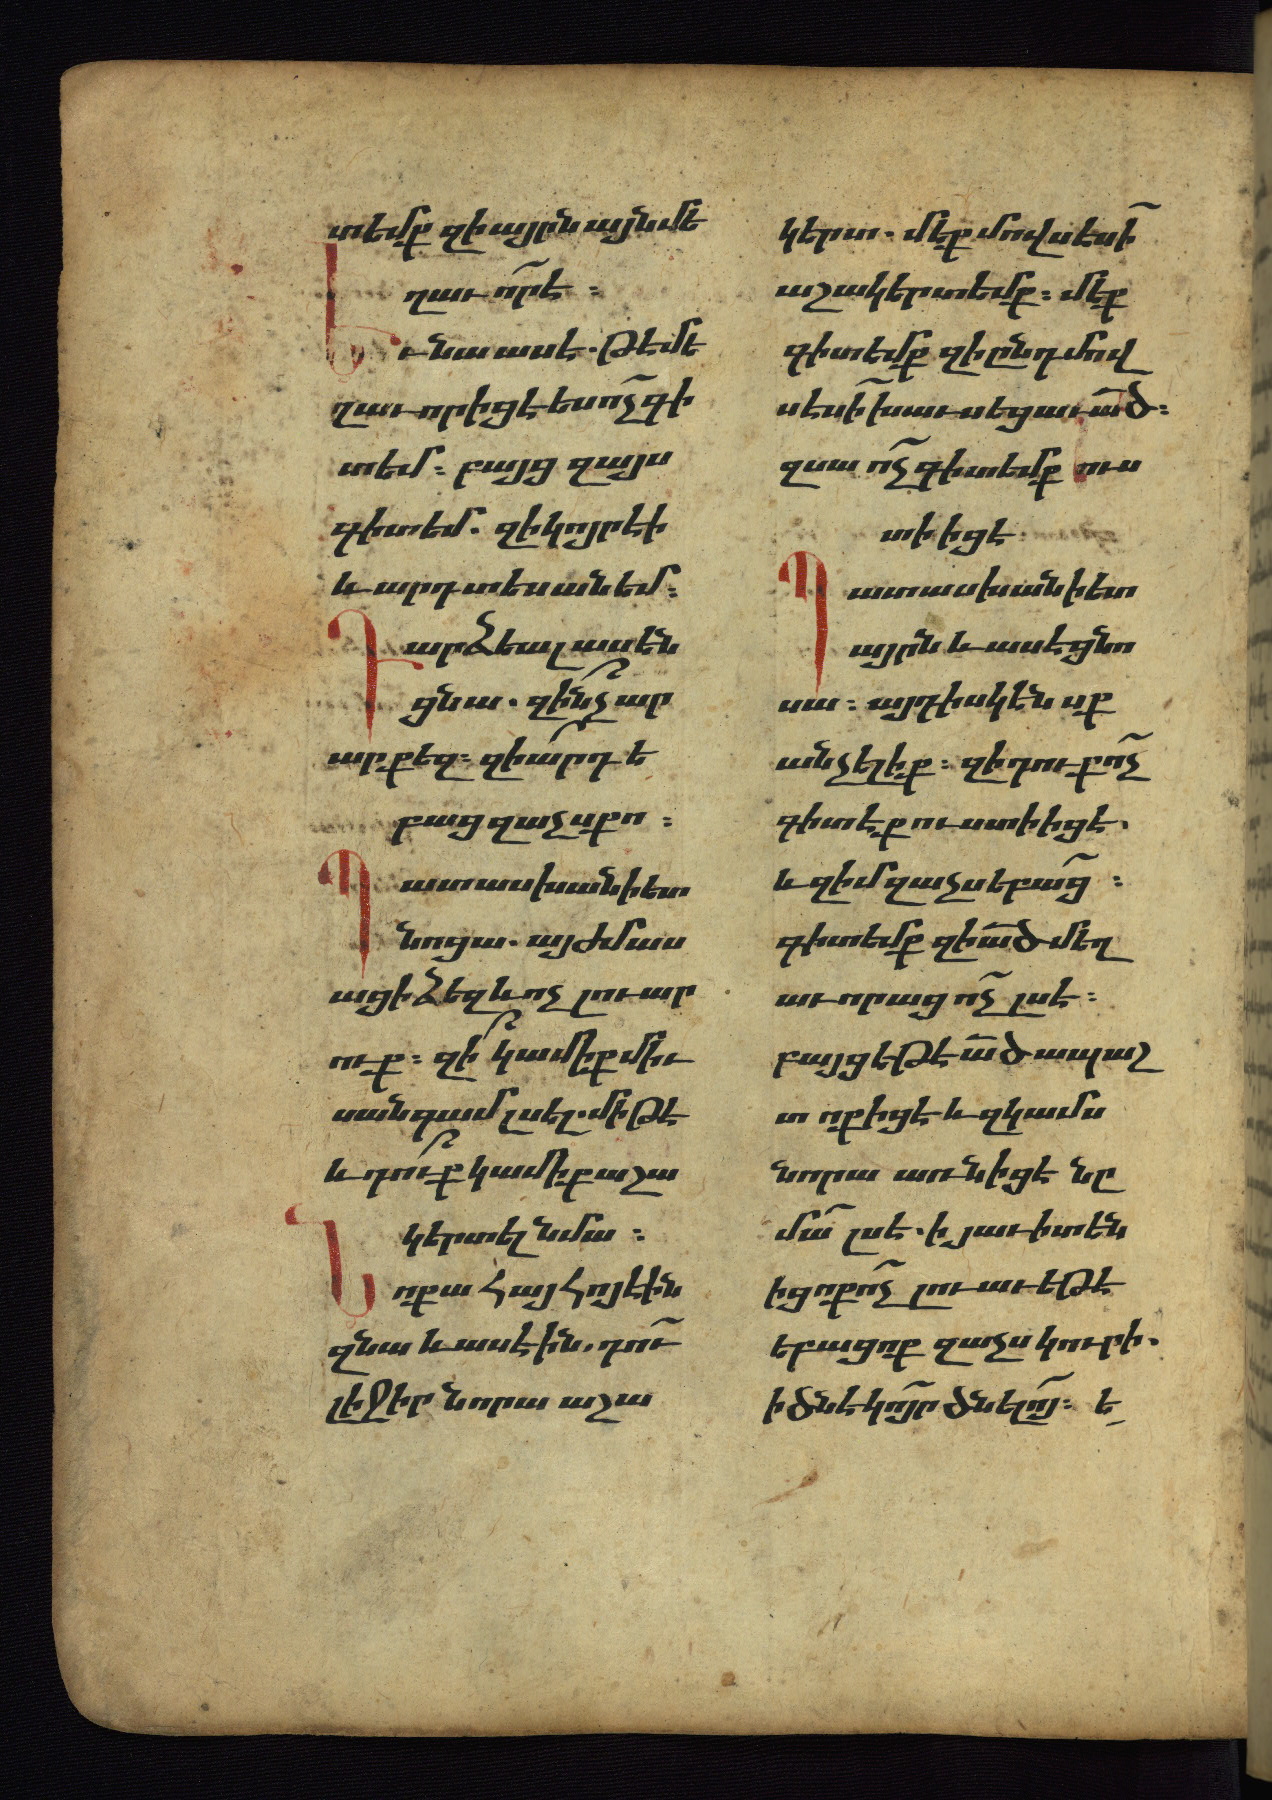 տեմք զի այրն այն մե
ղաւո՞ր է։
Եւ նա ասէ. թե մե
ղաւոր իցէ ես ոչ գի
տեմ։ բայց զայս
գիտեմ. զի կոյր էի
և արդ տեսանեմ։
Դարձեալ ասեն
ցնա. զի՞նչ ար
ար քեզ։ զիա՞րդ ե
բաց զաչս քո։
Պատասխանի ետ
նոցա. այժմ աս
ացի ձեզ և ոչ լուար
ուք։ զի՞ կամիք միւ
սանգամ լսել. միթէ
և դո՞ւք կամիք աշա
կերտել նմա։
Նոքա հայհոյեին
զնա և ասէին. դո՛ւ
լեջիր նորա աշա
կերտ. մեք մովսեսի՛
աշակերտեմք։ մեք
գիտեմք զի ընդ մով
սէսի՛ խաւսեցաւ ա̅ծ։
զսա ո՛չ գիտեմք ուս
տի իցէ։
Պատասխանի ետ
այրն և ասէ ցնո
սա։ այդ իսկ են սք
անչելիք։ զի դուք ո՛չ
գիտէք ուստի իցէ.
և զիմ զաչս եբա՛ց։
գիտեմք զի ա̅ծ մեղ
աւորաց ո՛չ լսէ։
բայց եթէ ա̅ծապաշ
տ ոք իցէ և զկամս
նորա առնիցէ նը
մա՛ լսե. ի յաւիտեն
ից ոք ո՛չ լուաւ եթէ
եբաց ոք զաչս կուրի.
ի ծնէ կո՛յր ծնելո՛յ։ ե